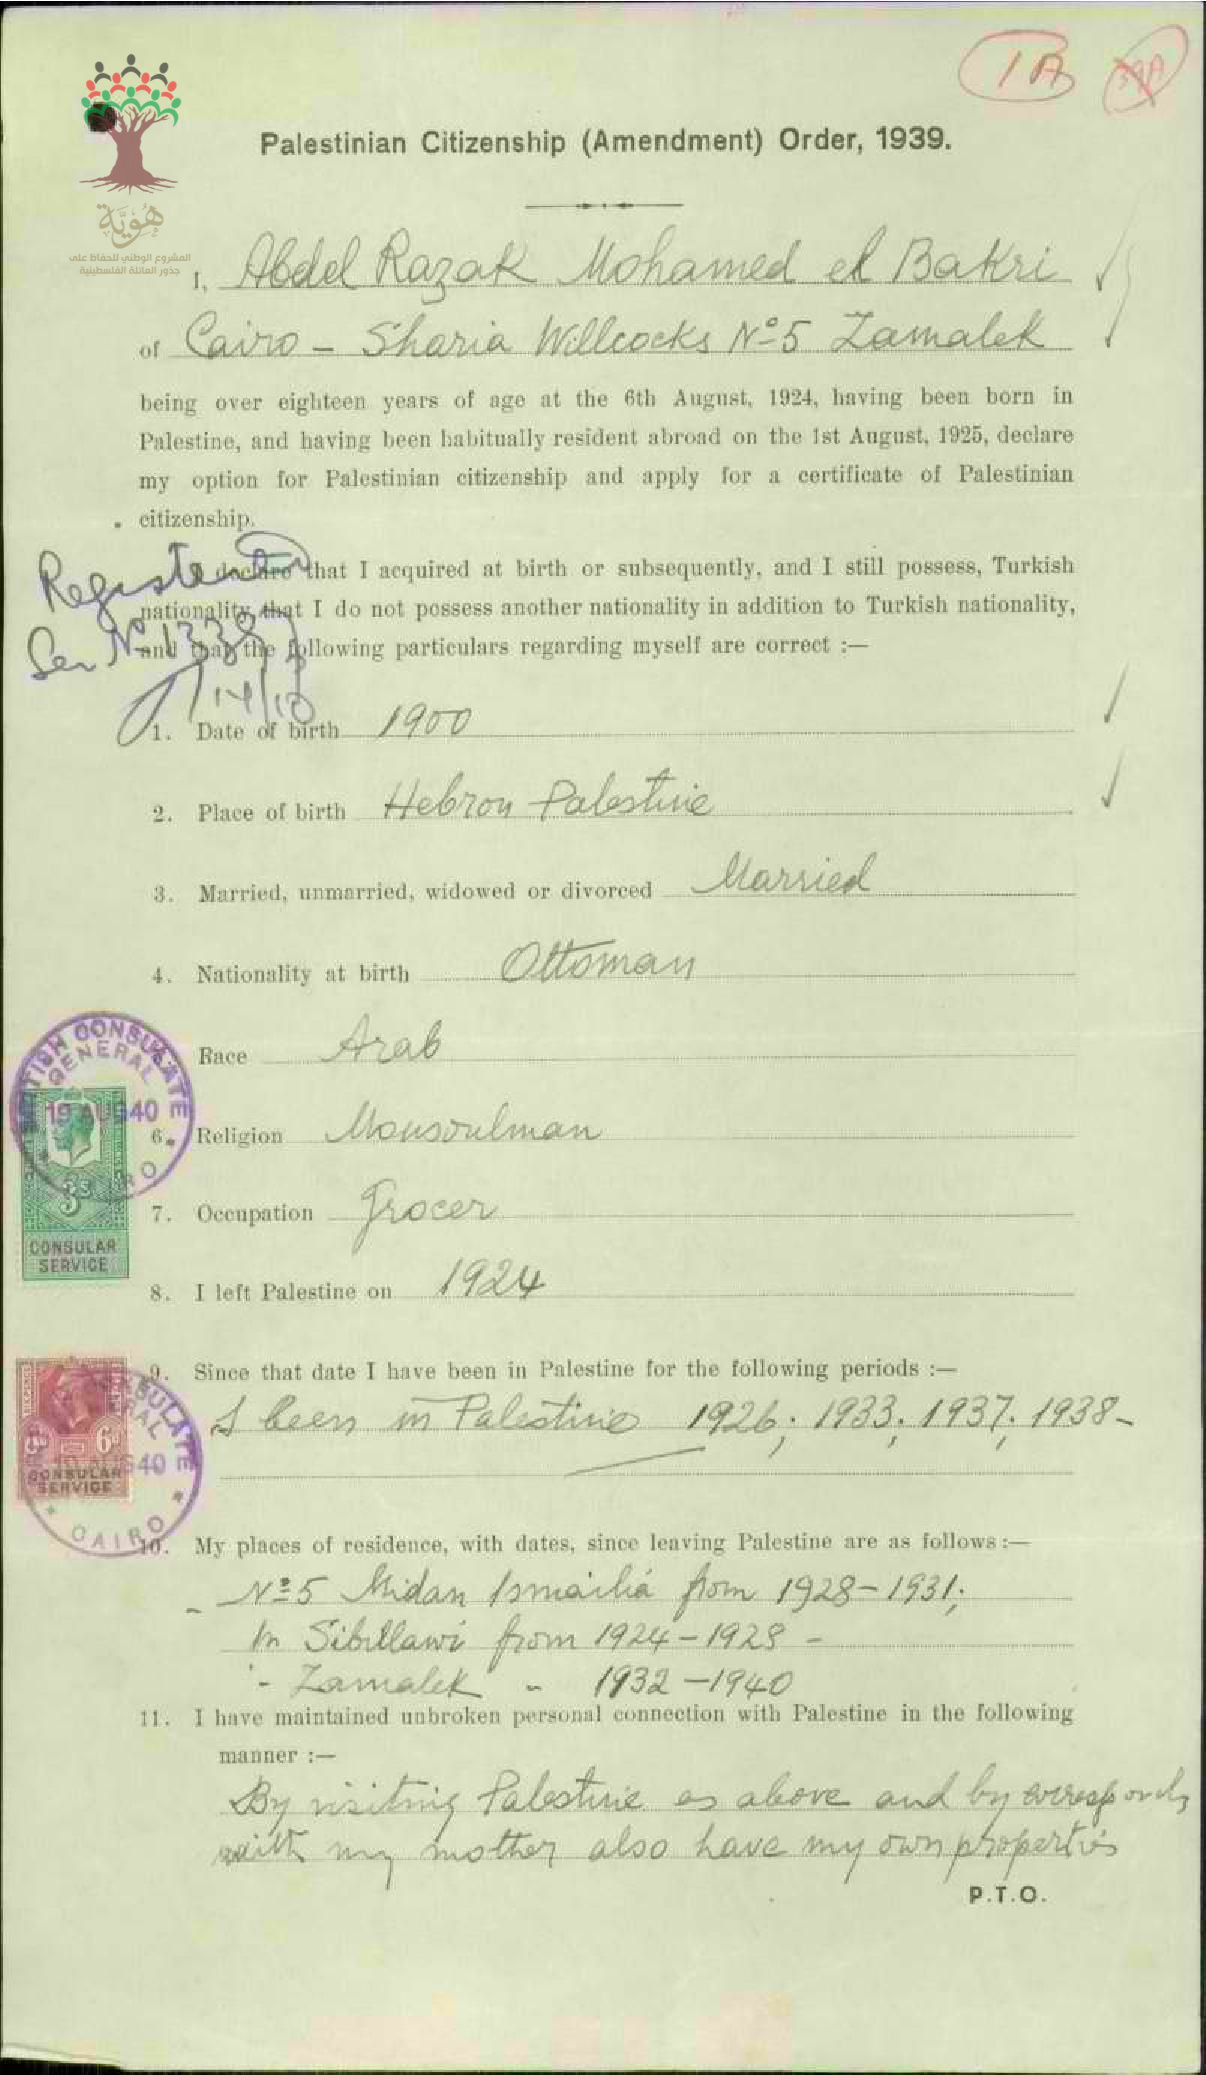 1A
39A
هُوِيَّة
المشروع الوطني للحفاظ على
جذور العائلة الفلسطينية
Palestinian Citizenship (Amendment) Order, 1939.
I, Abdel Razak Mohamed el Bakri
of Cairo - Sharia Willcocks Nº 5 Zamalek
being over eighteen years of age at the 6th August, 1924, having been born in
Palestine, and having been habitually resident abroad on the 1st August, 1925, declare
my option for Palestinian citizenship and apply for a certificate of Palestinian
citizenship.
I declare that I acquired at birth or subsequently, and I still possess, Turkish
nationality, that I do not possess another nationality in addition to Turkish nationality,
and that the following particulars regarding myself are correct :—
Registered
Ser Nº
14/10
1. Date of birth 1900
2. Place of birth Hebron Palestine
3. Married, unmarried, widowed or divorced Married
4. Nationality at birth Ottoman
Race Arab
6. Religion Mousoulman
7. Occupation Grocer
8. I left Palestine on 1924
BRITISH CONSULATE GENERAL
19 AUG 40
CAIRO
3s
CONSULAR
SERVICE
9. Since that date I have been in Palestine for the following periods :—
I been in Palestine 1926; 1933; 1937; 1938-
CONSULATE
6d
AUG 40
CONSULAR
SERVICE
CAIRO
10. My places of residence, with dates, since leaving Palestine are as follows :—
- Nº 5 Midan Ismailia from 1928-1931;
In Sibillawi from 1924-1928 -
- Zamalek " 1932-1940
11. I have maintained unbroken personal connection with Palestine in the following
manner :—
By visiting Palestine as above and by
with my mother also have my own properties
P.T.O.